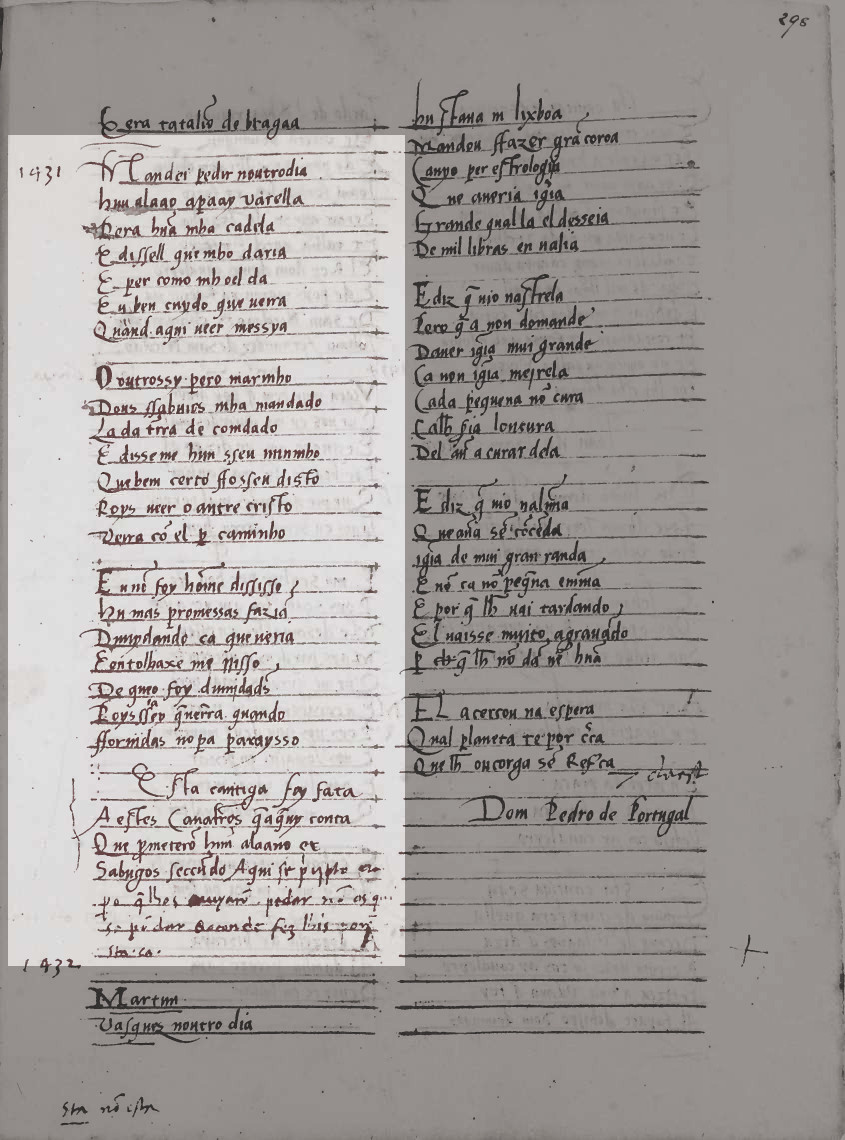 296
E era tatalio de bragaa
1431
Mandei pedir noutrodia
huu alaao apaay varella
Pera hũa mha cadela
E dissell que mho daria
E per como mh oel da
Eu ben cuydo que uerra
Quand aqui ueer messya
Doutrossy pero marinho
Dous ssabuios mha mandado
La da trra de comdado
E disseme huũ sseu meninho
Que bem certo ffosseu disto
Poys ueer o antre cristo
Verra cõ el per caminho
Eu nõ foy home dississo
hu mas promessas fazia
Dmydando ca queueria
E ontolhaxe me nisso
De queo foy dimidads
Poys ssey q̃ uerra quando
fformidas no pa parayso
Esta cantiga foy fata
A estes Caualr̃os q̃ aq̃uy conta
Que p̃meterõ huũ alaano et
Sabugos
1432
Martim
Vasques noutro dia
hu staua m lixboa
Mandou ffazer grã coroa
Canyo per estrologia
Que aueria igr̃ia
Grande qual la el desseia
De mil libras en ualia
E diz q̃ uio na strela
Pero q̃ a non domande
Dauer igr̃ia mui grande
Ca non igr̃ia mejrela
Ca da pequena nõ cura
Ca lh̃ sia lousura
Del au a curar dela
E diz q̃ uio na lũna
Que aũa sẽ cõtẽda
igr̃ia de mui gran randa
E nõ ca nõ peq̃na emma
E por q̃ lh̃ uai tardando
El uaisse muyto agrauado
p̃ q̃ lh̃ nõ dã nẽ hũa
El a cercou na espera
Qual planeta te por cr̃a
Que lh̃ outorga sẽ Refr̃ta
Dom Pedro de Portugal
Sta nõ esta